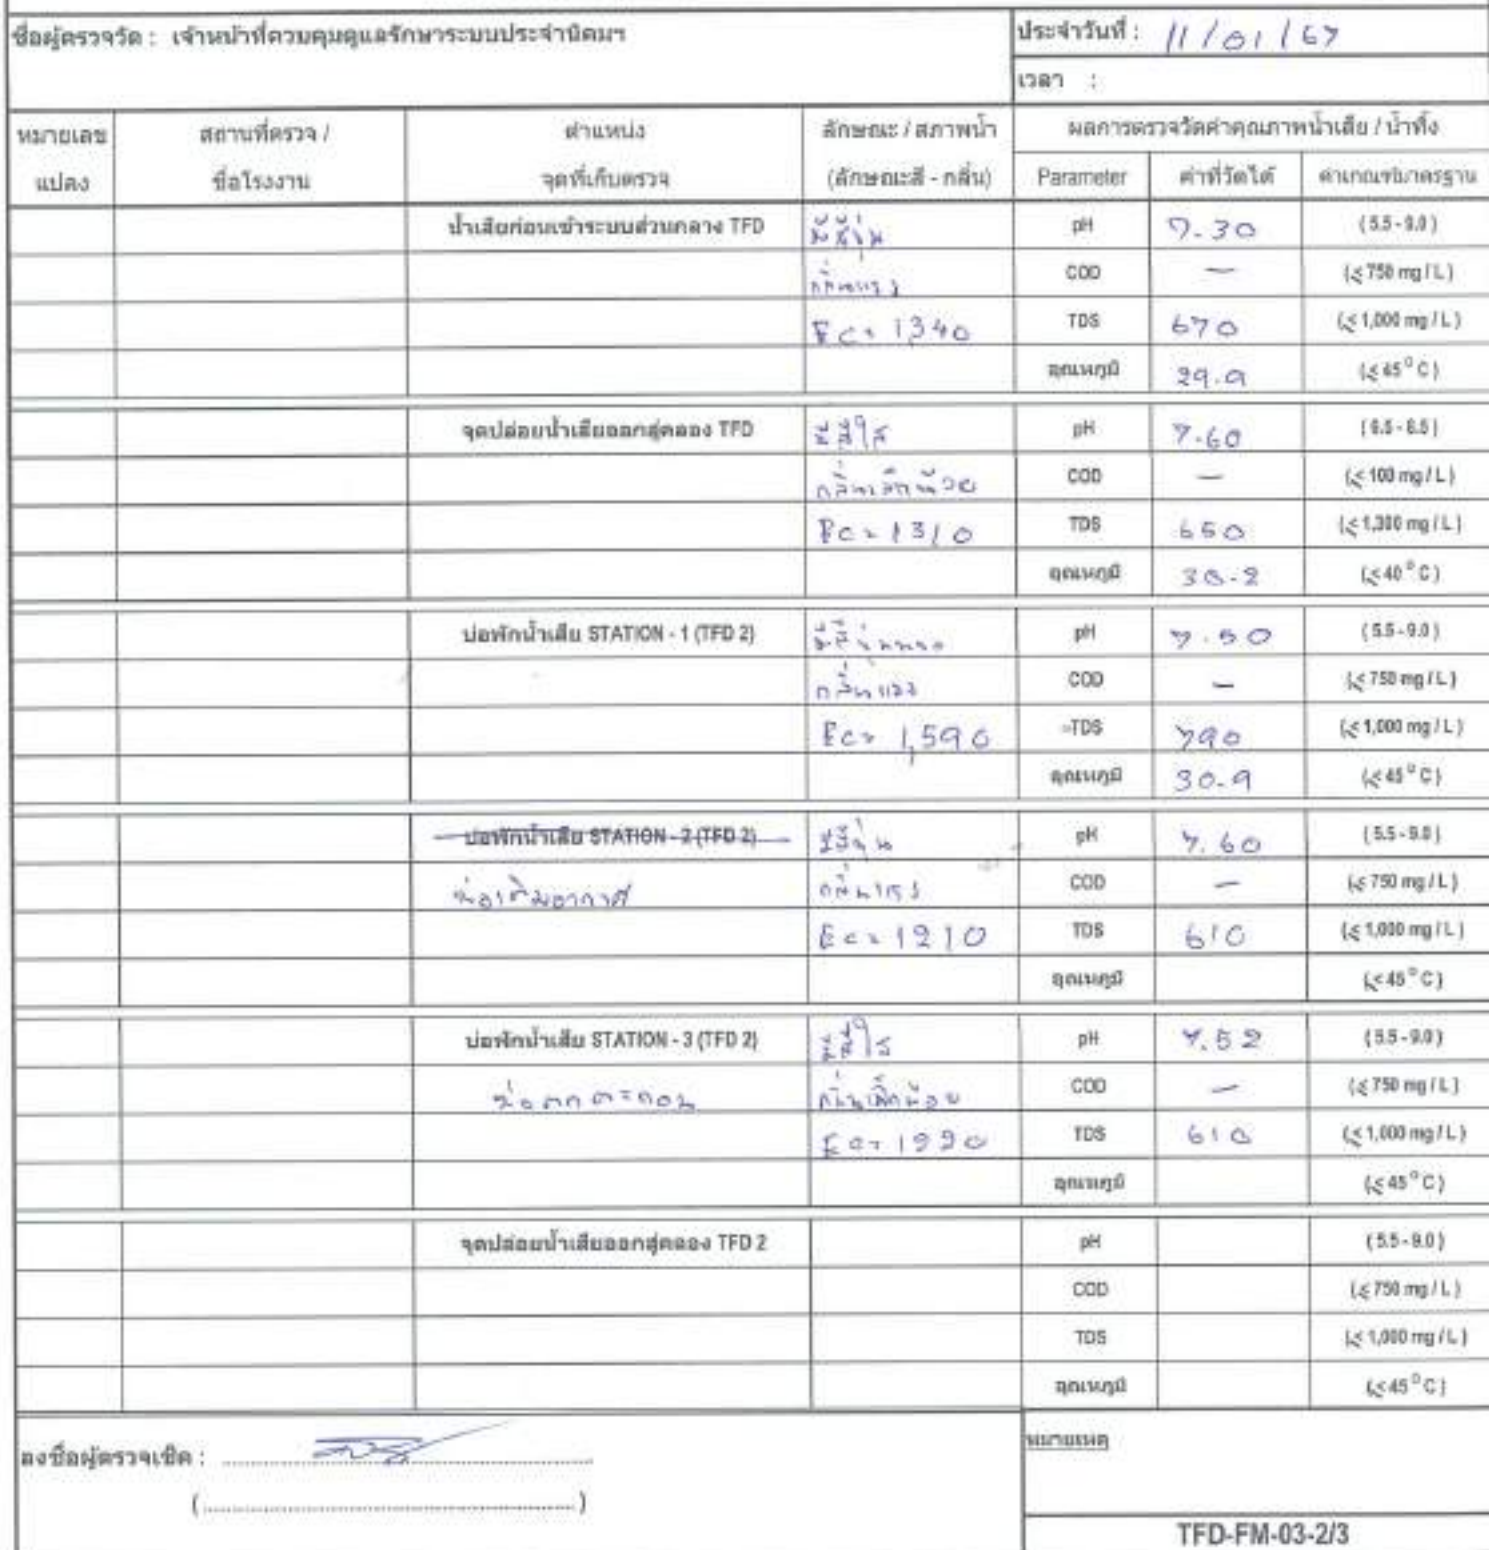 ชื่อผู้ตรวจวัด : เจ้าหน้าที่ควบคุมดูแลรักษาระบบประจำนิคมฯ
ประจำวันที่ : 11/01/67
เวลา :
หมายเลข สถานที่ตรวจ / ตำแหน่ง ลักษณะ / สภาพน้ำ ผลการตรวจวัดค่าคุณภาพน้ำเสีย / น้ำทิ้ง
แปลง ชื่อโรงงาน จุดที่เก็บตรวจ (ลักษณะสี - กลิ่น) Parameter ค่าที่วัดได้ ค่าเกณฑ์มาตรฐาน
น้ำเสียก่อนเข้าระบบส่วนกลาง TFD มีสีขุ่น pH 7.30 (5.5 - 9.0)
กลิ่นแรง COD — (≤ 750 mg / L)
EC = 1340 TDS 670 (≤ 1,000 mg / L)
อุณหภูมิ 29.9 (≤ 45⁰ C)
จุดปล่อยน้ำเสียออกสู่คลอง TFD มีสีใส pH 7.60 (6.5 - 8.5)
กลิ่นเล็กน้อย COD — (≤ 100 mg / L)
EC = 1310 TDS 650 (≤ 1,300 mg / L)
อุณหภูมิ 30.2 (≤ 40⁰ C)
บ่อพักน้ำเสีย STATION - 1 (TFD 2) มีสีขุ่น pH 7.50 (5.5 - 9.0)
กลิ่นแรง COD — (≤ 750 mg / L)
EC = 1,590 TDS 790 (≤ 1,000 mg / L)
อุณหภูมิ 30.9 (≤ 45⁰ C)
บ่อพักน้ำเสีย STATION - 2 (TFD 2) มีสีขุ่น pH 7.60 (5.5 - 9.0)
บ่อเติมอากาศ กลิ่นแรง COD — (≤ 750 mg / L)
EC = 1210 TDS 610 (≤ 1,000 mg / L)
อุณหภูมิ (≤ 45⁰ C)
บ่อพักน้ำเสีย STATION - 3 (TFD 2) มีสีใส pH 7.52 (5.5 - 9.0)
บ่อตกตะกอน กลิ่นเล็กน้อย COD — (≤ 750 mg / L)
EC = TDS 610 (≤ 1,000 mg / L)
อุณหภูมิ (≤ 45⁰ C)
จุดปล่อยน้ำเสียออกสู่คลอง TFD 2 pH (5.5 - 9.0)
COD (≤ 750 mg / L)
TDS (≤ 1,000 mg / L)
อุณหภูมิ (≤ 45⁰ C)
ลงชื่อผู้ตรวจเช็ค : ..........
(..........)
หมายเหตุ
TFD-FM-03-2/3